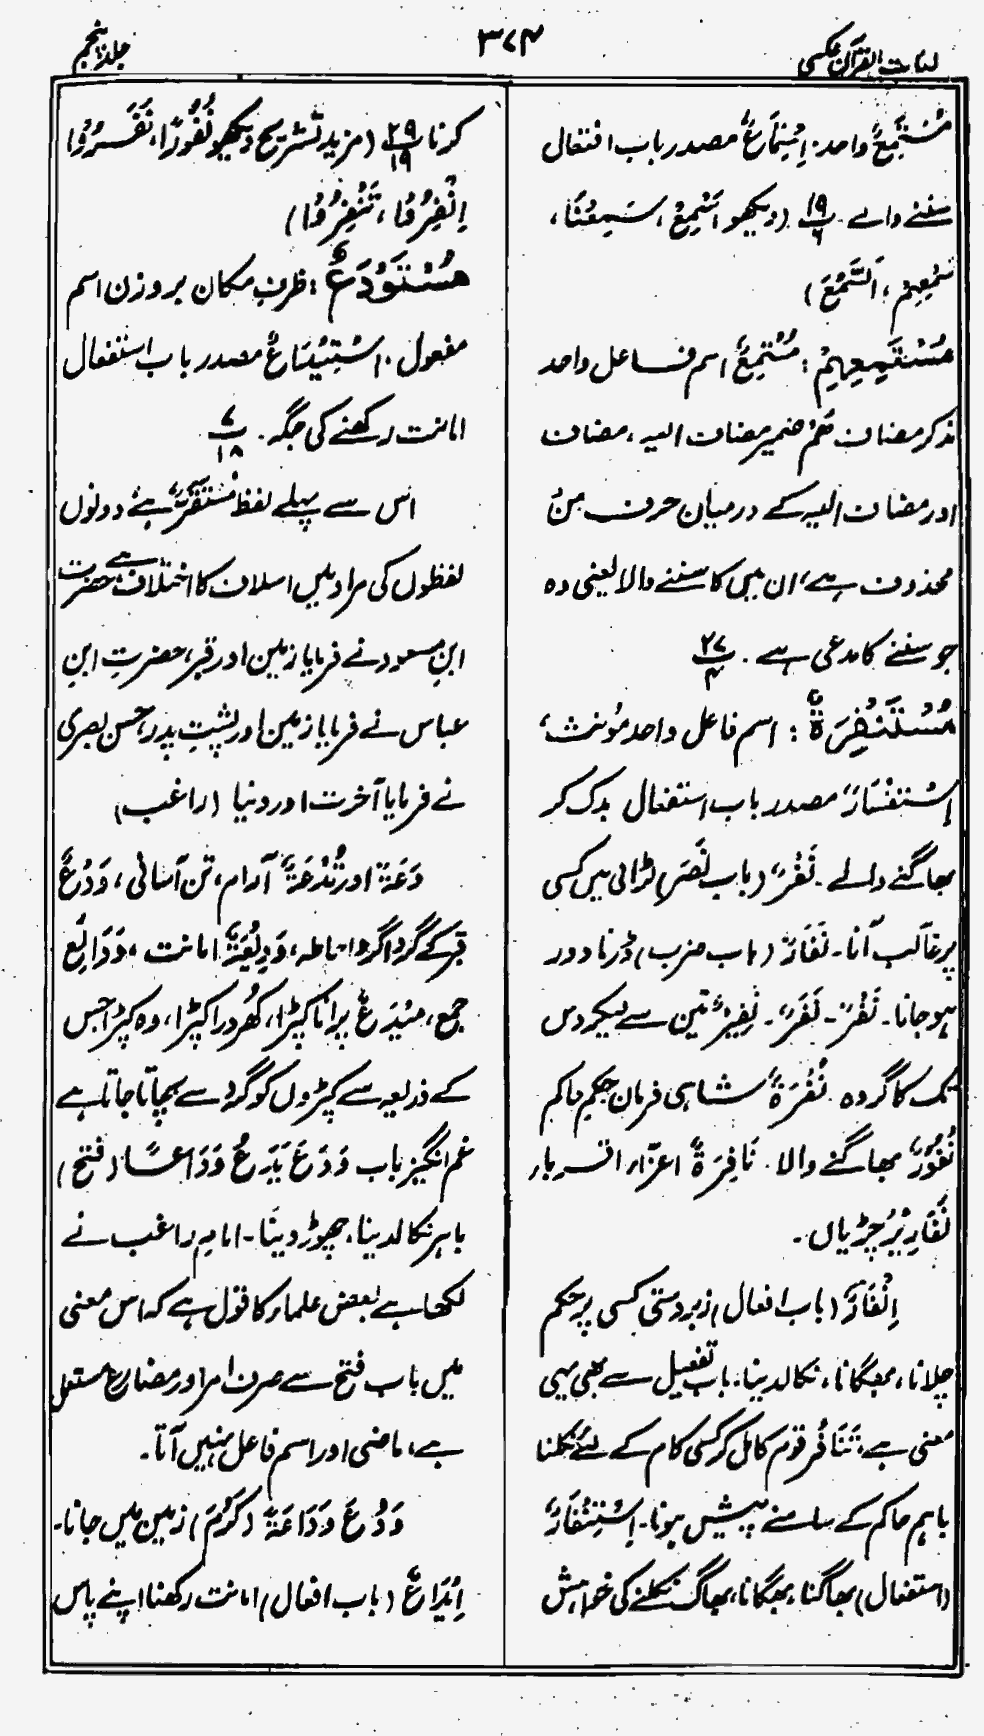 لغات القرآن عکسی
۳۷۴
جلد پنجم
مُسْتَمِعٌ واحد۔ اِسْتِمَاعٌ مصدر باب افتعال
سننے والے۔ ۱۹/۶ (دیکھو اَسْمِعْ، سَمِعْنَا،
سَمْعِهِمْ، اَلسَّمْعَ)
مُسْتَمِعِهِمْ: مُسْتَمِعٌ اسم فاعل واحد
مذکر مضاف ھُمْ ضمیر مضاف الیہ، مضاف
اور مضاف الیہ کے درمیان حرف مِنْ
محذوف ہے، ان میں کا سننے والا یعنی وہ
جو سننے کا مدعی ہے۔ ۲۷/۴
مُسْتَنْفِرَةٌ: اسم فاعل واحد مؤنث،
اِسْتِنْفَارٌ مصدر باب استفعال بدک کر
بھاگنے والے۔ نَفْرٌ (باب نَصَرَ) لڑائی میں کسی
پر غالب آنا۔ نَفَارٌ (باب ضرب) ڈرنا دور
ہو جانا۔ نَفْرٌ۔ نَفَرٌ۔ نَفِيْرٌ تین سے لیکر دس
تک کا گروہ۔ نُفْرَةٌ شاہی فرمان حکیم حاکم
نُفُوْرٌ بھاگنے والا۔ نَافِرَةٌ اعزاء اقربار
نَفَارِيْرُ چڑیاں۔
اِنْفَارٌ (باب افعال) زبردستی کسی پر حکم
چلانا، بھگانا، نکالدینا۔ باب تفعیل سے بھی یہی
معنی ہے، تَنَافُر قوم کا مل کر کسی کام کے لئے نکلنا
باہم حاکم کے سامنے پیش ہونا۔ اِسْتِنْفَارٌ
(استفعال) بھاگنا، بھگانا، بھاگ نکلنے کی خواہش
کرنا ۲۹/۱۹ (مزید تشریح دیکھو نُفُوْرًا، نَفَرُوْا
اِنْفِرُوْا، تَنْفِرُوْا)
مُسْتَوْدَعٌ: ظرفِ مکان بروزن اسم
مفعول۔ اِسْتِيْدَاعٌ مصدر باب استفعال
امانت رکھنے کی جگہ۔ ۷/۱۸
اس سے پہلے لفظ مُسْتَقَرٌّ ہے دونوں
لفظوں کی مراد میں اسلاف کا اختلاف ہے، حضرت
ابنِ مسعود نے فرمایا زمین اور قبر، حضرتِ ابنِ
عباس نے فرمایا زمین اور پشتِ پدر، حسن بصری
نے فرمایا آخرت اور دنیا (راغب)
دَعَةٌ اور تُدْعَةٌ آرام، تن آسانی، وَدْعٌ
قبر کے گرداگرد احاطہ، وَدِيْعَةٌ امانت، وَدَائِع
جمع، مِيْدَعٌ پرانا کپڑا، کھُردرا کپڑا، وہ کپڑا جس
کے ذریعہ سے کپڑوں کو گرد سے بچاتا جاتا ہے
غم انگیز باب وَدَعَ يَدَعُ وَدَاعًا (فتح)
باہر نکالدینا، چھوڑ دینا۔ امام راغب نے
لکھا ہے بعض علماء کا قول ہے کہ اس معنی
میں باب فتح سے صرف امر اور مضارع مستعمل
ہے، ماضی اور اسم فاعل نہیں آتا۔
وَدُعَ وَدَاعَةٌ (کَرُمَ) زمین میں جانا۔
اِيْدَاعٌ (باب افعال) امانت رکھنا اپنے پاس